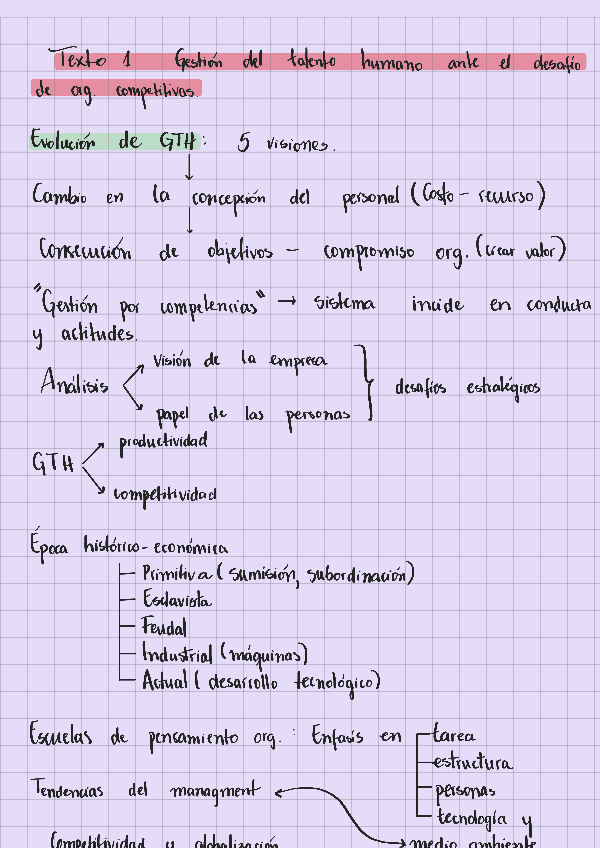 Texto 1 Gestión del talento humano ante el desafío
de org. competitivas.
Evolución de GTH: 5 visiones.
Cambio en la concepción del personal (Costo - recurso)
Consecución de objetivos - compromiso org. (crear valor)
"Gestión por competencias" → sistema incide en conducta
y actitudes.
visión de la empresa
Análisis
desafíos estratégicos
papel de las personas
productividad
GTH
competitividad
Época histórico-económica
Primitiva (sumisión, subordinación)
Esclavista
Feudal
Industrial (máquinas)
Actual (desarrollo tecnológico)
Escuelas de pensamiento org. : Enfasis en
tarea
estructura
personas
tecnología y
medio ambiente
Tendencias del managment
Competitividad y globalización